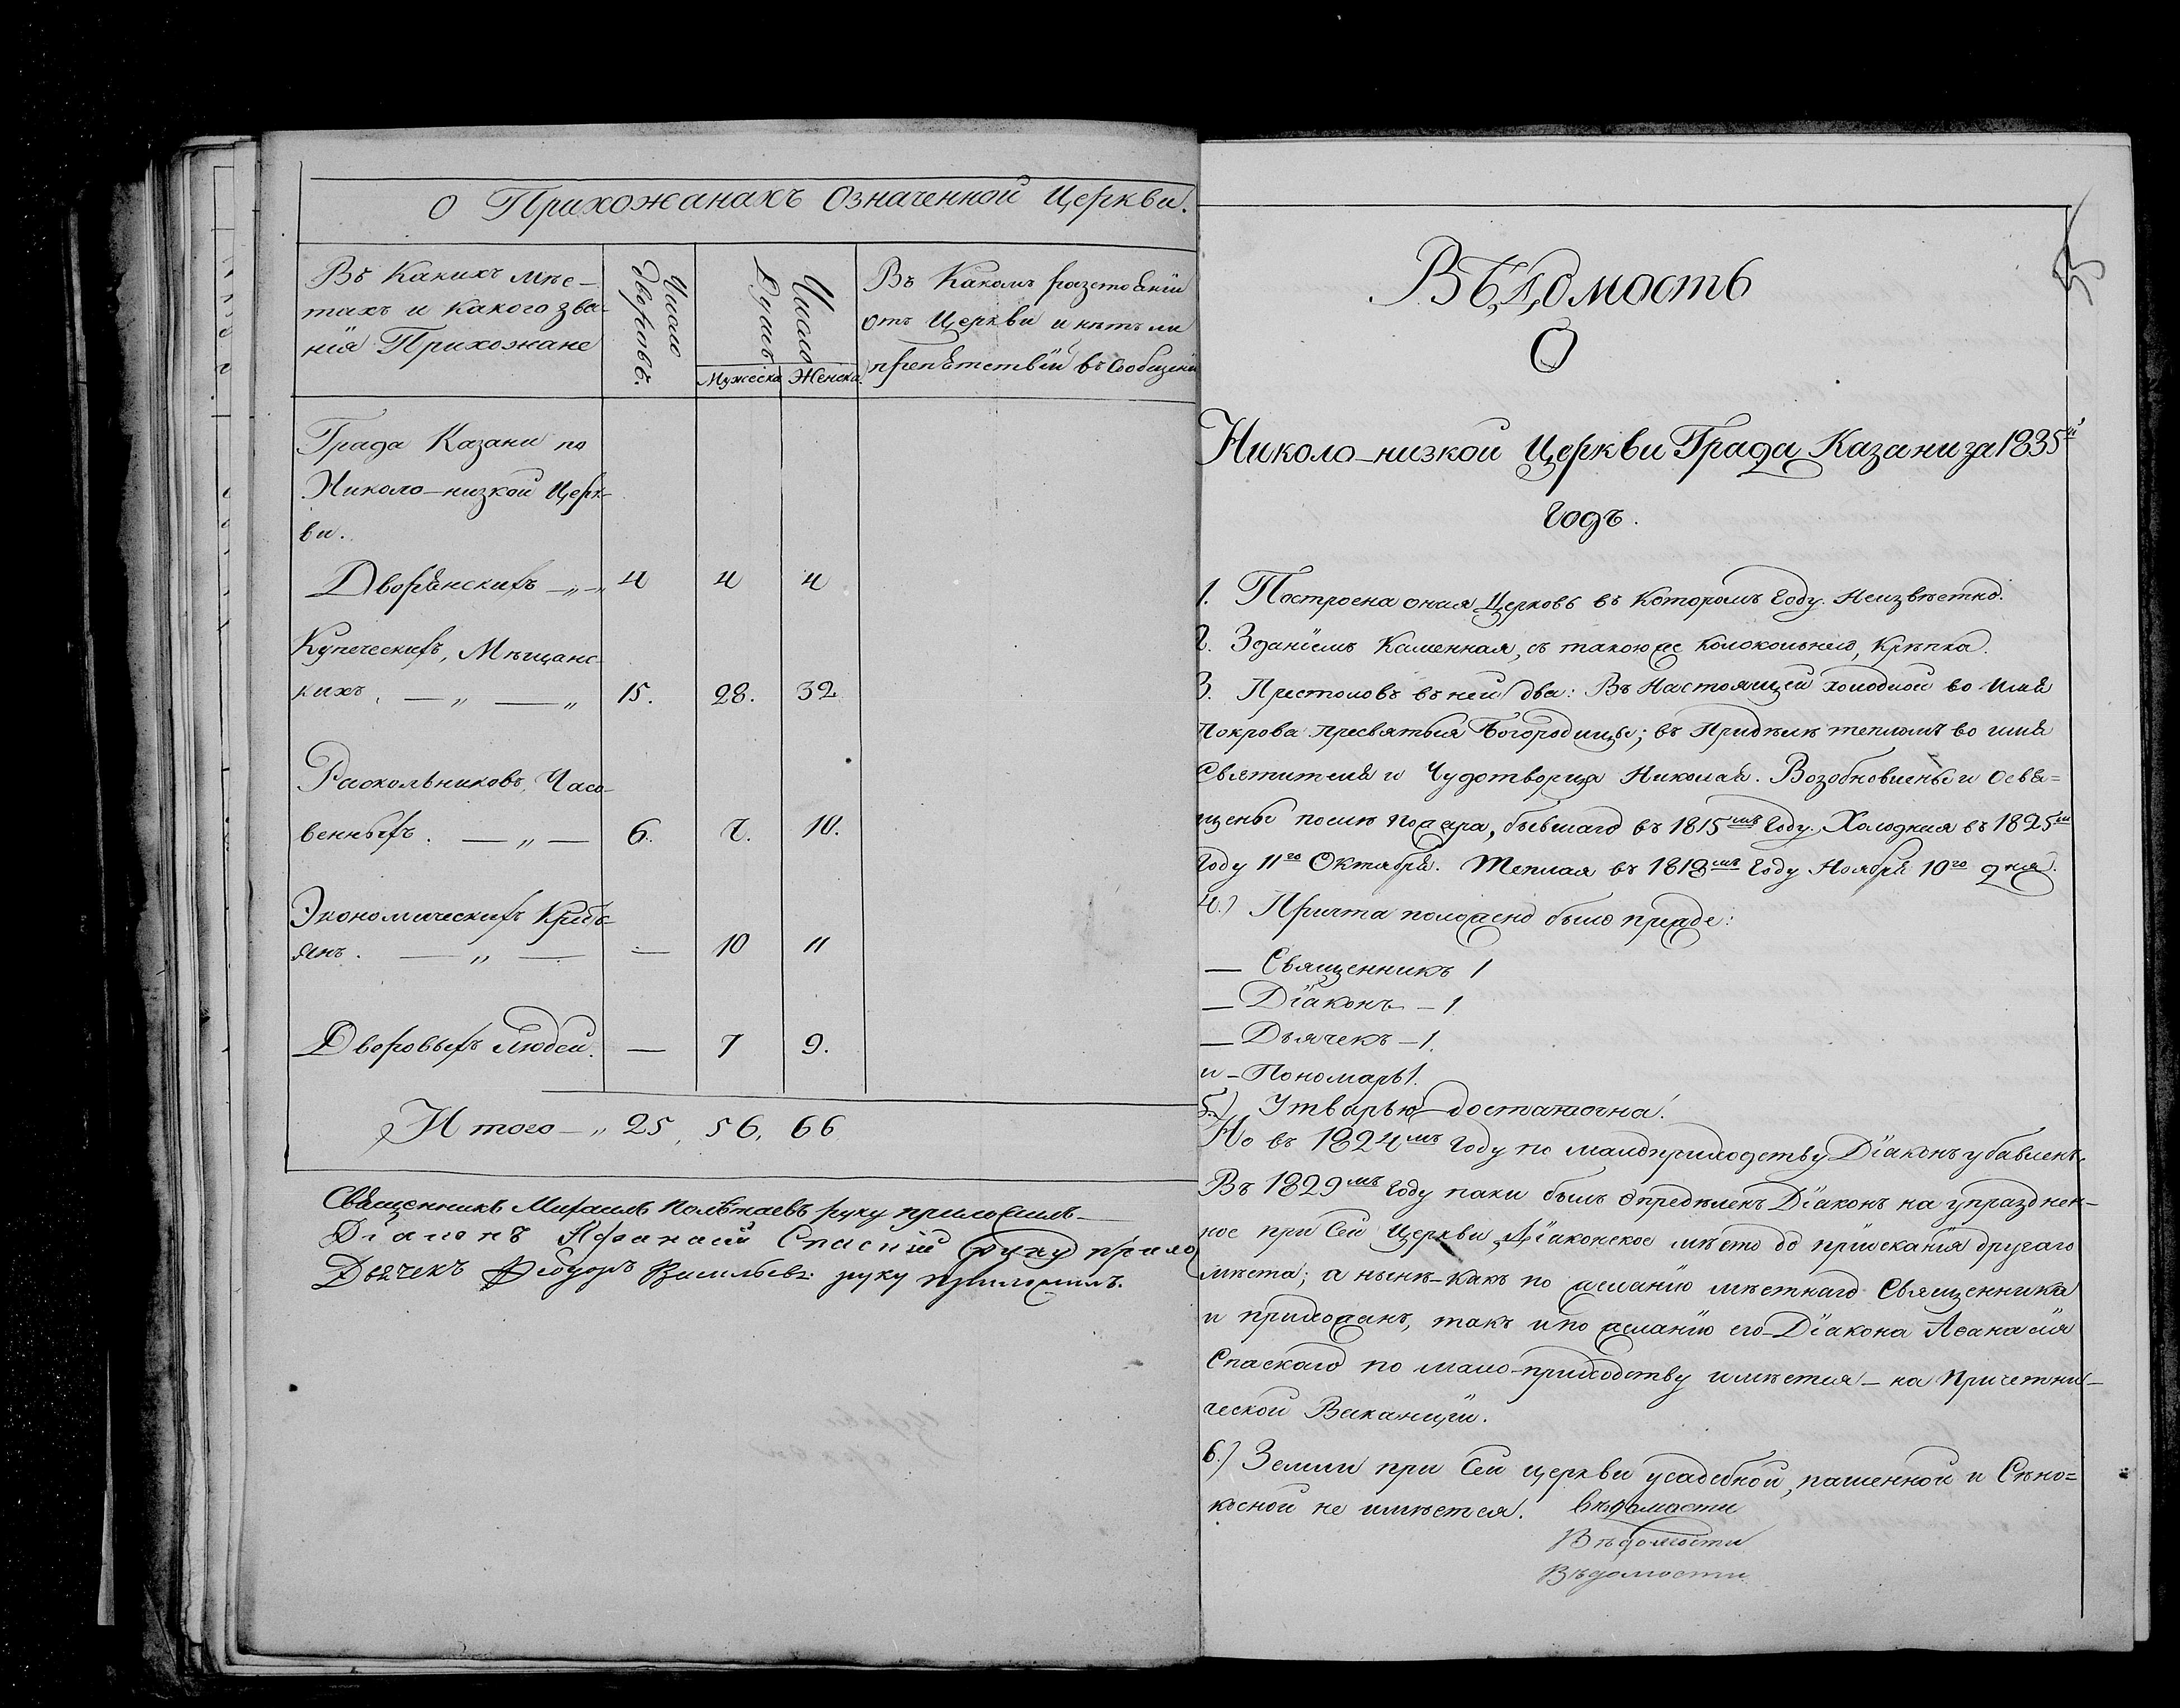 О Прихожанахъ Означенной Церкви.
Въ Какихъ мѣс-
тахъ и какого зва-
нія Прихожане
Число
дворовъ.
Число
Душъ
Мужеска
Женска.
Въ Какомъ разстояніи
Отъ Церкви и нѣтъ ли
препятствій въ сообщеніи
Града Казани по
Николо-низкой Церк-
ви.
Дворянскихъ —„— 4 4 4
Купеческихъ, Мѣщанс-
кихъ. — „ — „ 15. 28. 32
Раскольниковъ, Часо-
венныхъ. — „ — 6. 7. 10.
Экономическихъ Крестъ-
янъ. — „ — — 10 11
Дворовыхъ Людей. — 7 9.
Итого —„ 25, 56, 66
Священникъ Михаилъ Полѣтаевъ руку приложилъ
Діаконъ Афанасій Спаскій руку прило
Дьячекъ Ѳеодоръ Васильевъ руку приложилъ.
55
Вѣдомость
О
Николо-низкой Церкви Града Казани за 1835й
годъ.
1. Построена оная Церковь въ Которомъ Году. Неизвѣстно.
2. Зданіемъ Каменная, съ такою же колокольнею, Крѣпка.
3. Престоловъ въ ней два: Въ Настоящей холодной во имя
Покрова пресвятыя Богородицы; въ Придѣлѣ тепломъ во имя
Святителя и Чудотворца Николая. Возобновлены и освя=
щены послѣ пожара, бывшаго въ 1815мъ Году. Холодная въ 1825м
Году 11го Октября. Теплая въ 1818мъ Году Ноября 10го дня.
4.) Причта положено было прежде:
— Священникъ 1
— Діаконъ — 1
— Дьячекъ — 1.
и — Пономарь 1.
5.) Утварью достаточна.
Но въ 1824мъ Году по малоприходству Діаконъ убавленъ.
Въ 1829мъ Году паки былъ опредѣленъ Діаконъ на упразднен-
ное при Сей Церкви Діаконское мѣсто до пріисканія другаго
мѣста; а нынѣ — какъ по желанію мѣстнаго Священника
и прихожанъ, такъ и по желанію его — Діакона Аѳанасія
Спаскаго по мало-приходству имѣется — на Причетни-
ческой Ваканціи.
6.) Земли при Сей церкви усадебной, пашенной и Сѣно=
косной не имѣется. вѣдомости
Вѣдомости
Вѣдомости